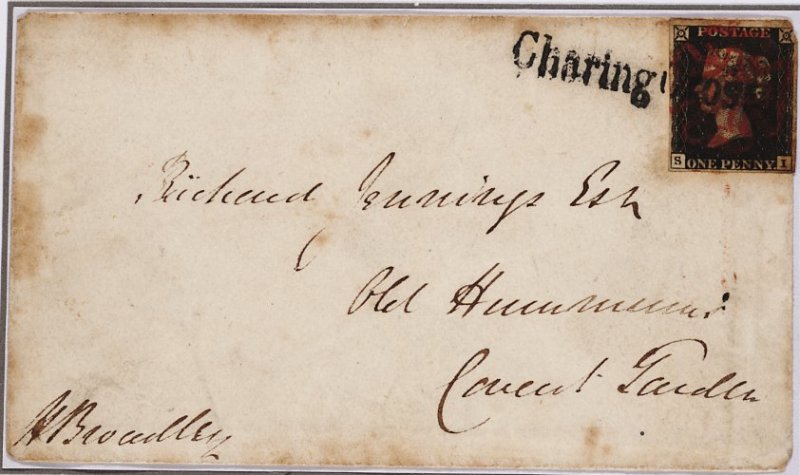 Charing Cross
POSTAGE
S ONE PENNY. I
Richard Jennings Esq
Old Hummums
Covent Garden
H Broadley